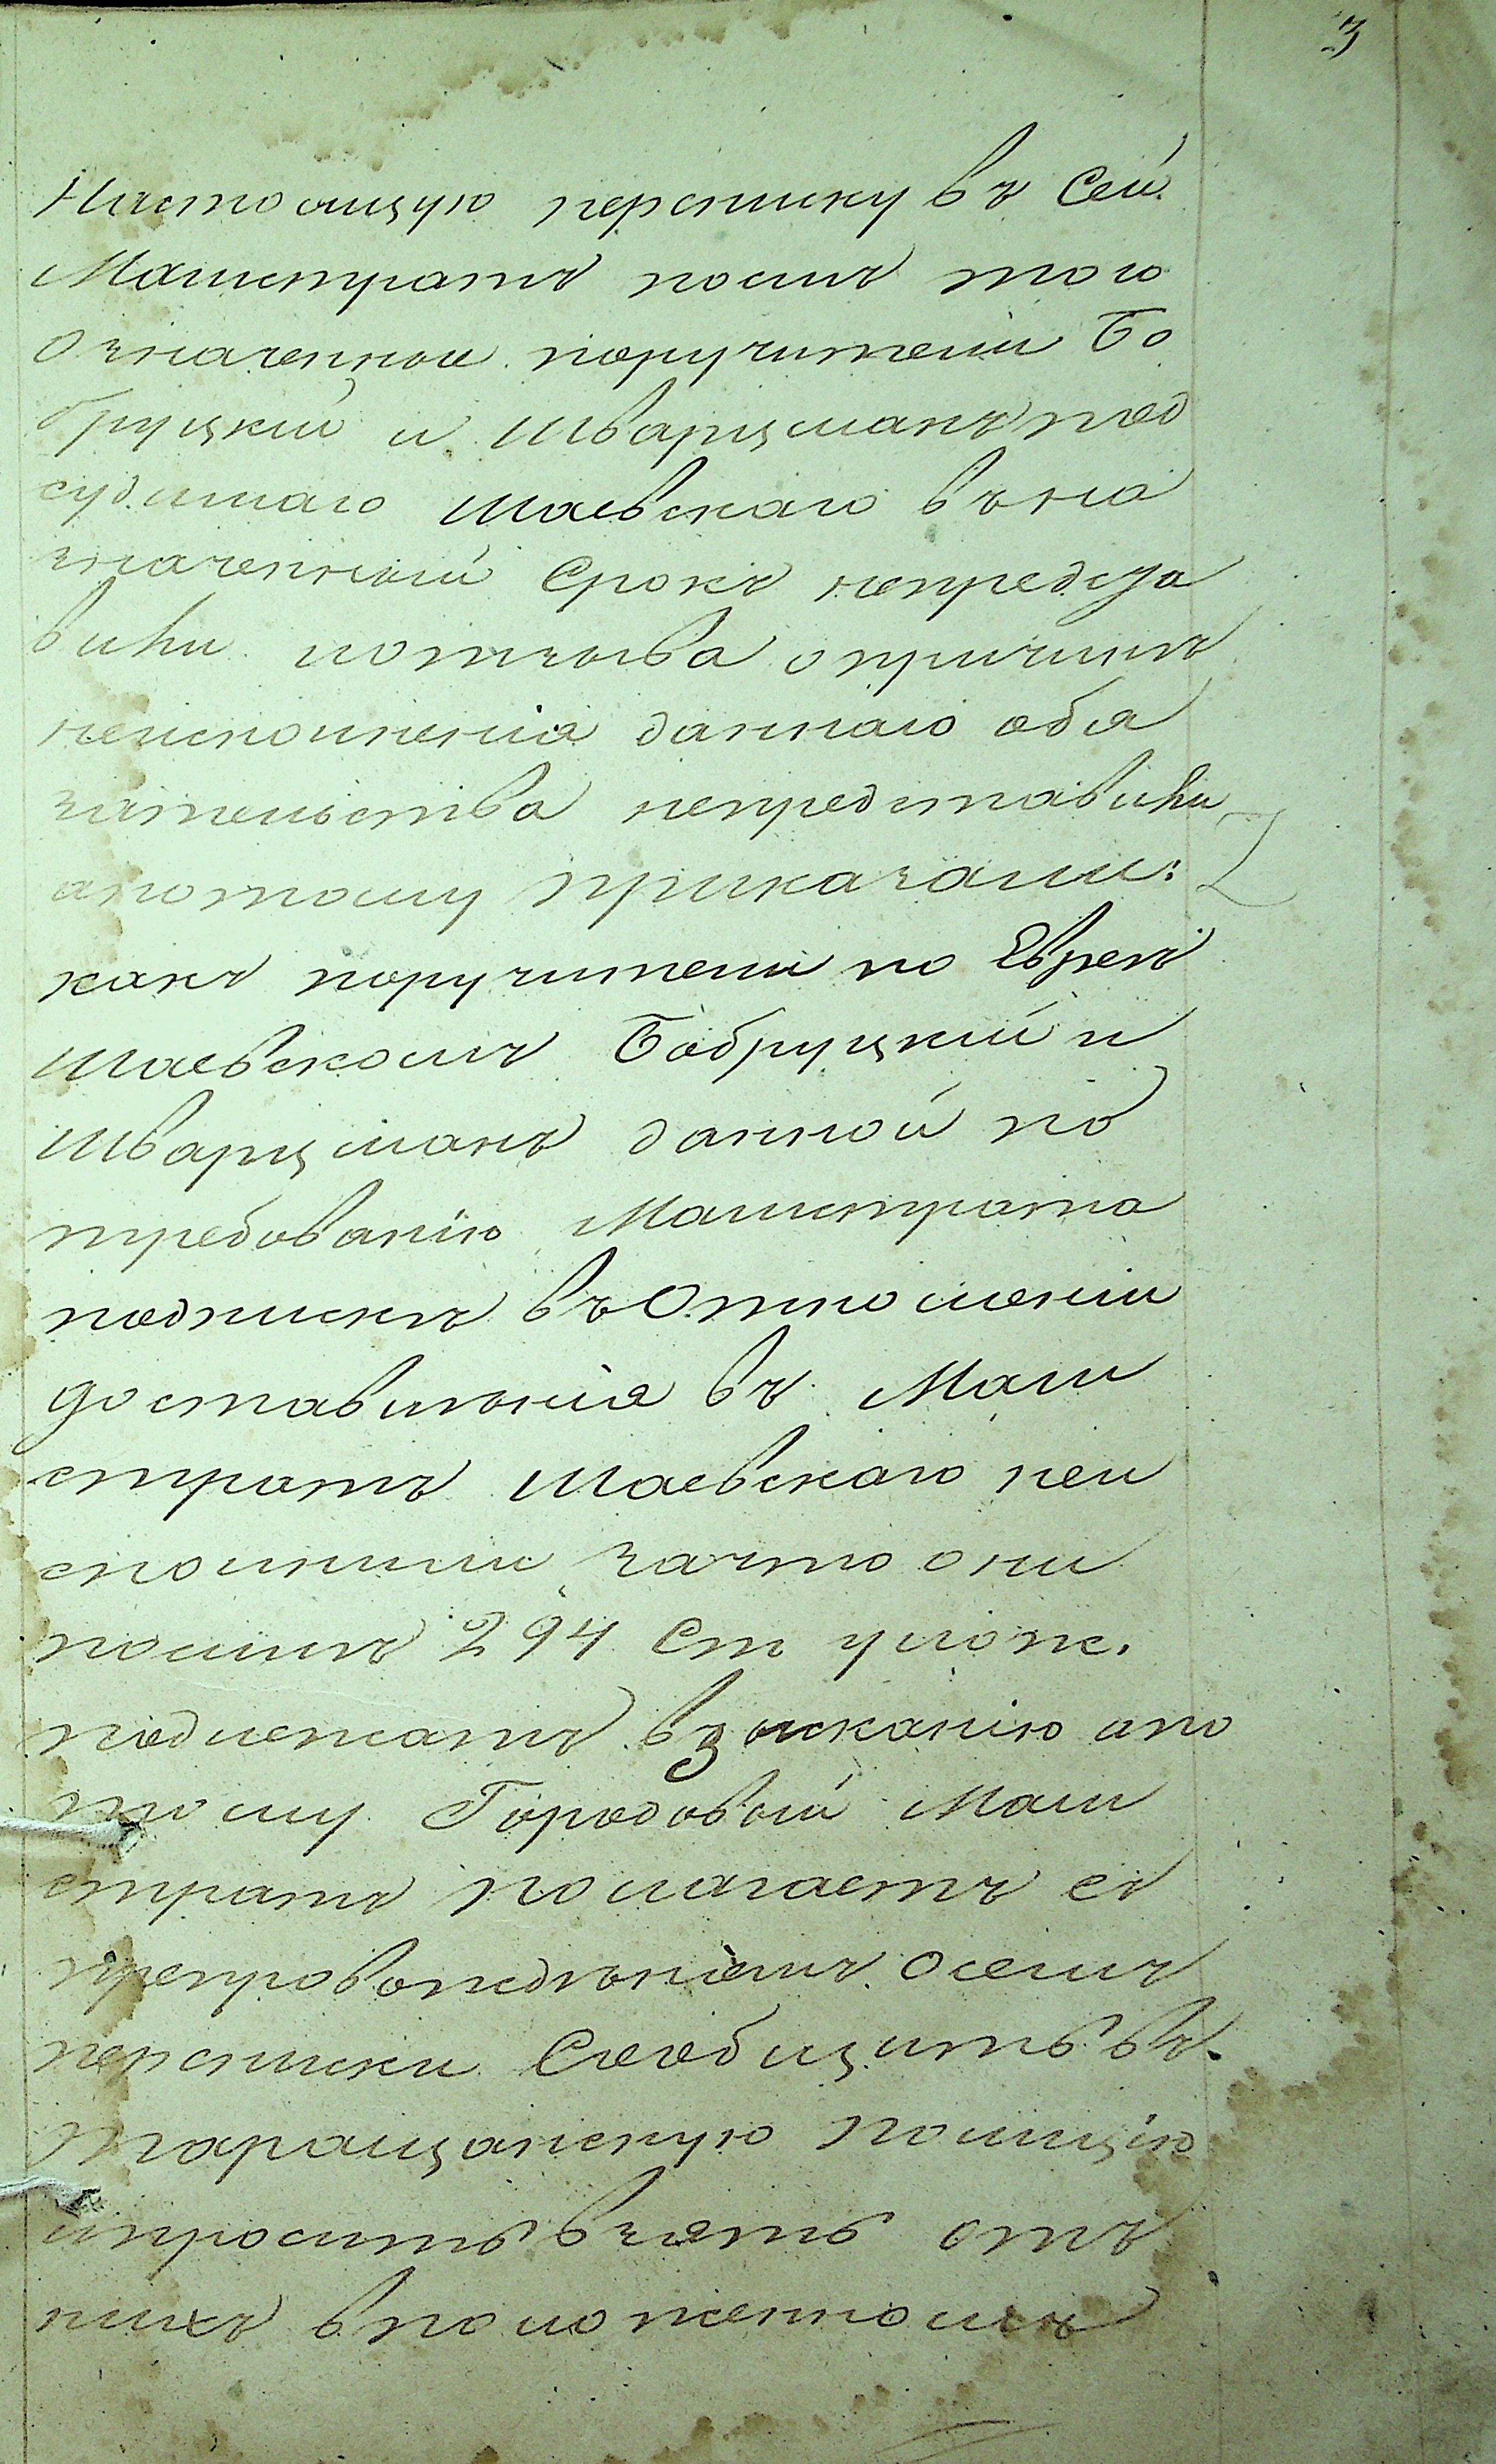 3
Настоящую переписку въ Сей
Магистратъ после того
Означенные поручители Бо
бруцкій и Шварцманъ под
судимаго Шаевскаго въ на
значенный Срокъ непредста
вили иотзыва опричинѣ
неисполненія даннаго обя
зательства непредставили
апотому приказали:
какъ поручители по Евреѣ
Шаевскомъ Бобруцкій и
Шварцманъ данной по
требованію Магистрата
подписки въ Отношеніи
доставильнія въ Маги
стратъ Шаевскаго неи
сполнили зачто они
посилѣ 294 Ст улож.
подлежатъ взысканію апо
тому Городовый Маги
стратъ полагаетъ съ
препровождѣніемъ Осемъ
переписки Сообщить въ
Таращанскую Полицію
ипросить взять отъ
нихъ вположенномъ